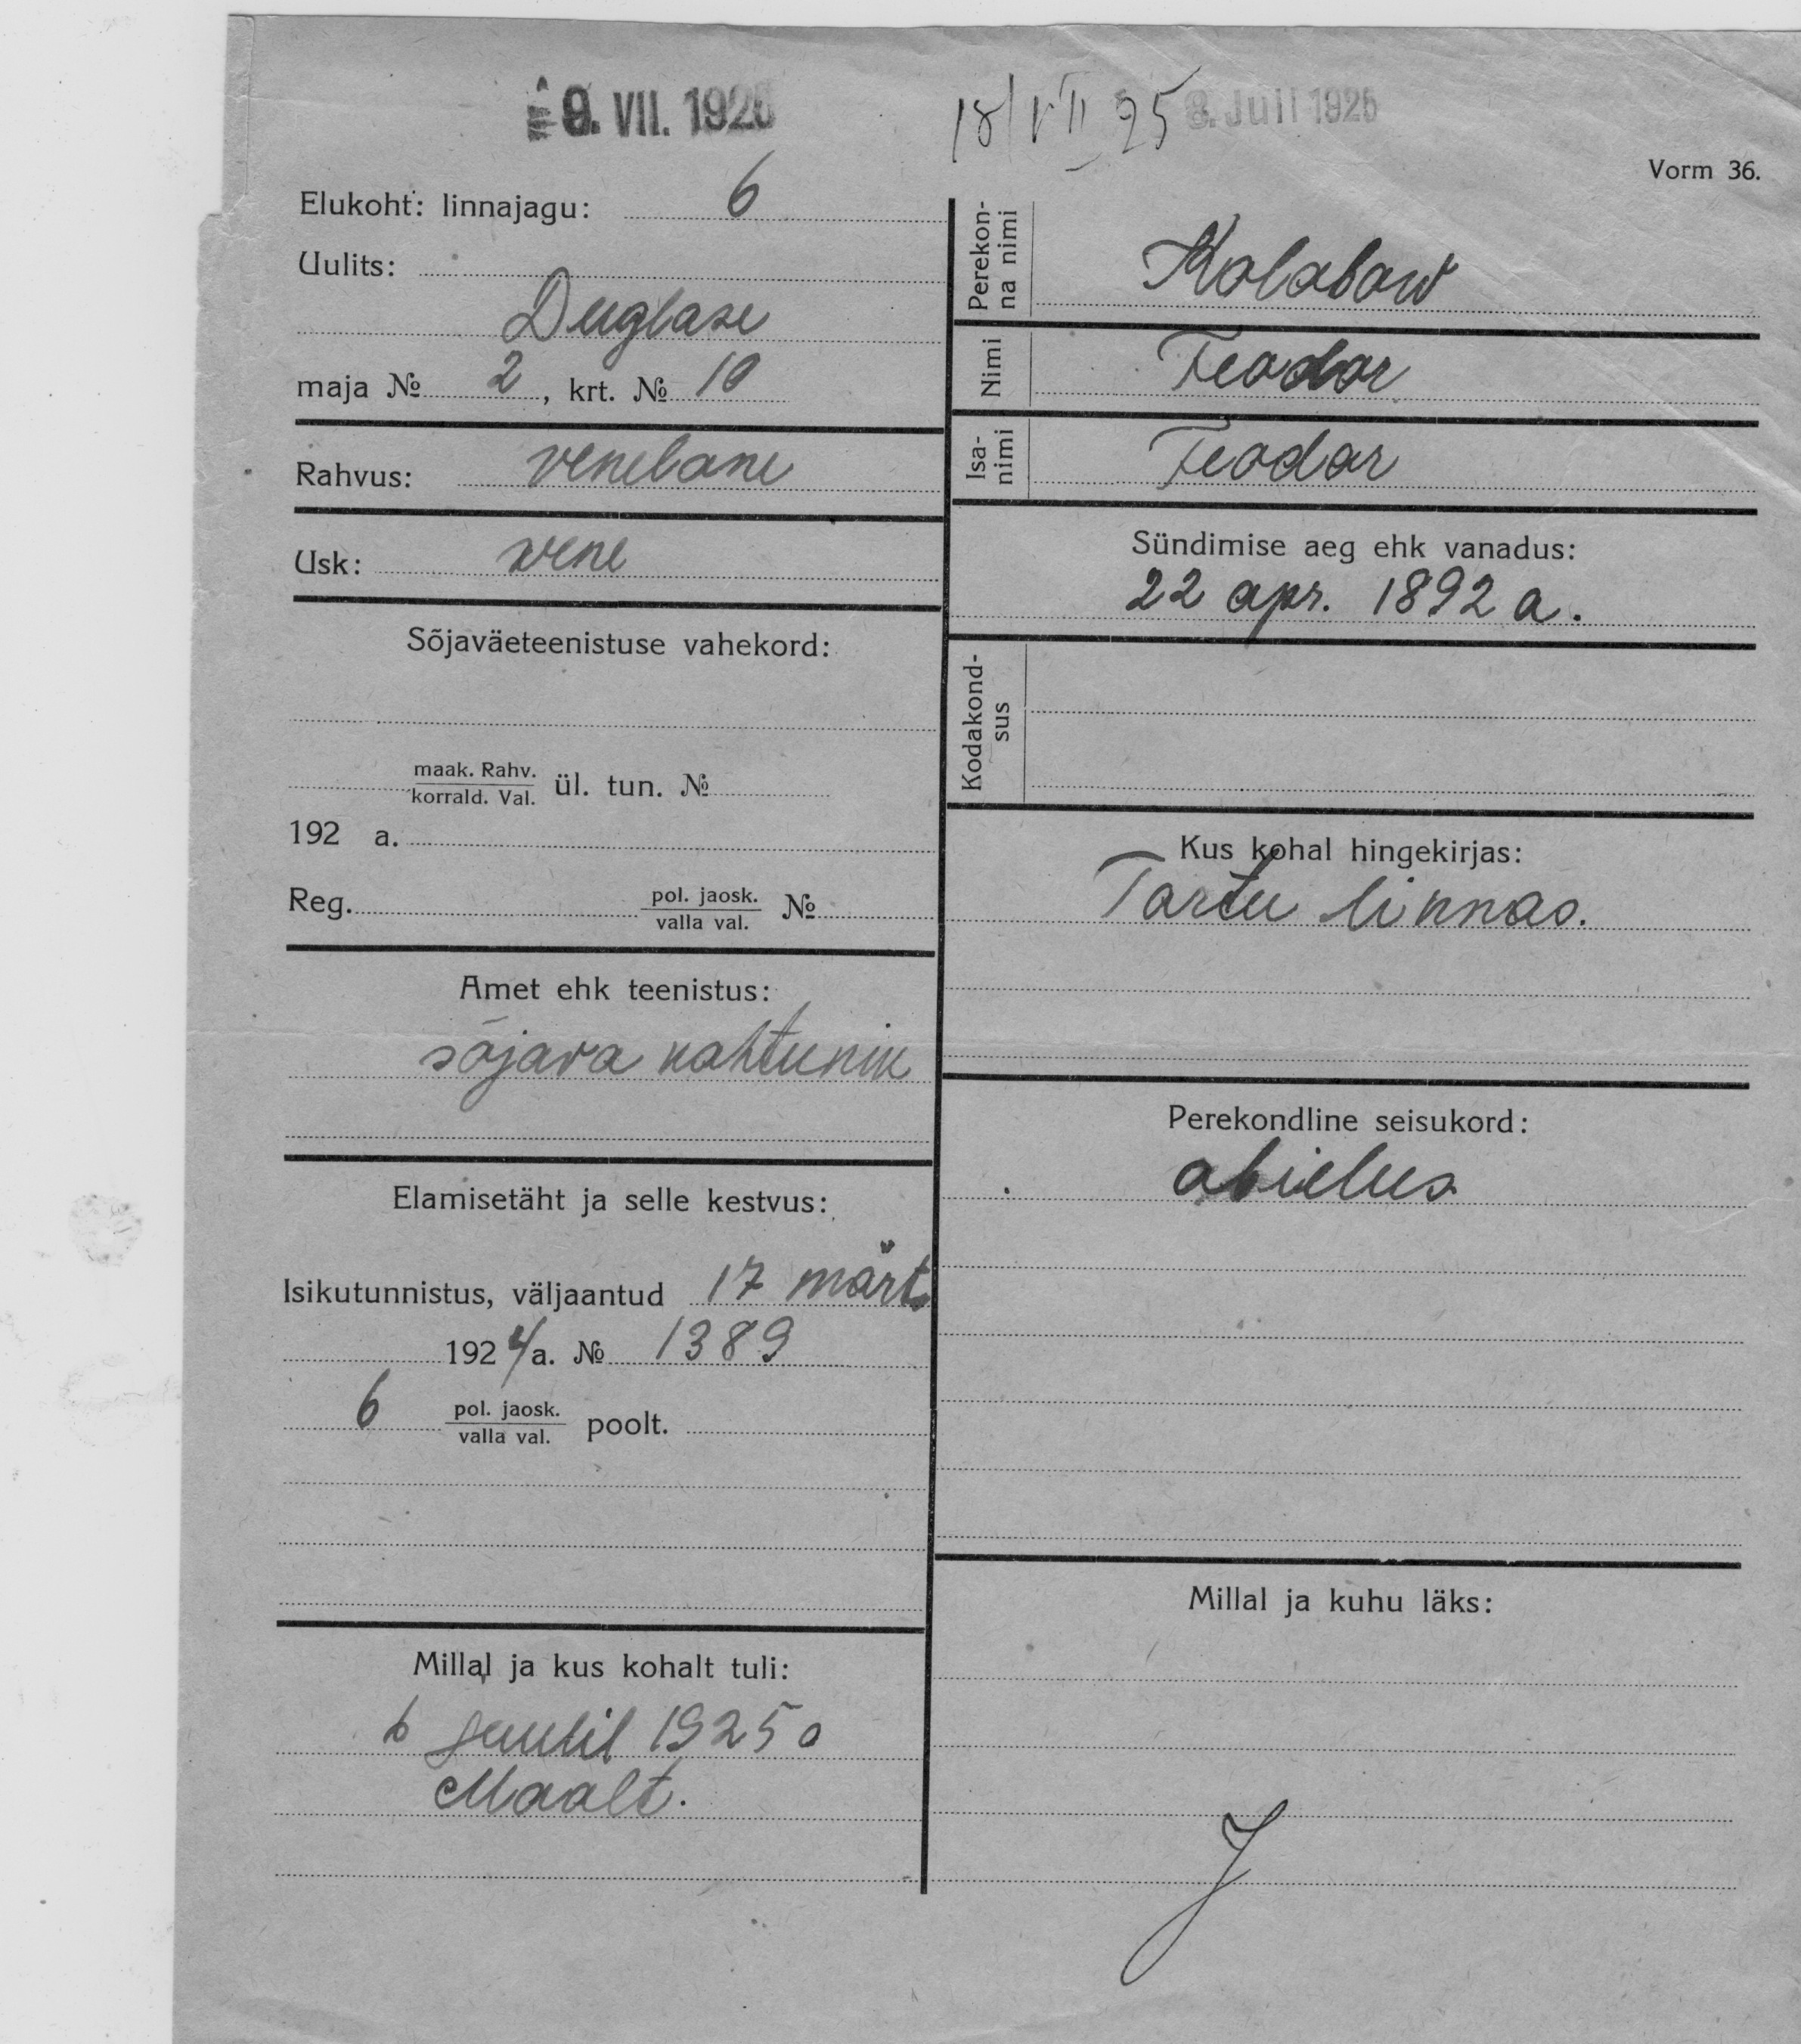 9. VII. 1925
18/VII 25 8. Juli 1925
Vorm 36.
Elukoht: linnajagu: 6
Uulits:
Duglase
maja № 2, krt. № 10
Rahvus: venelane
Usk: vene
Sõjaväeteenistuse vahekord:
maak. Rahv.
korrald. Val. ül. tun. №
192 a.
Reg. pol. jaosk.
valla val. №
Amet ehk teenistus:
sõjava kohtunik
Elamisetäht ja selle kestvus:
Isikutunnistus, väljaantud 17 märt
1924 a. № 1389
6 pol. jaosk.
valla val. poolt.
Millal ja kus kohalt tuli:
6 juulil 1925 a
Maalt.
Perekon-
na nimi
Kolobow
Nimi Feodor
Isa-
nimi
Feodor
Sündimise aeg ehk vanadus:
22 apr. 1892 a.
Kodakond-
sus
Kus kohal hingekirjas:
Tartu linnas.
Perekondline seisukord:
abielus
Millal ja kuhu läks: